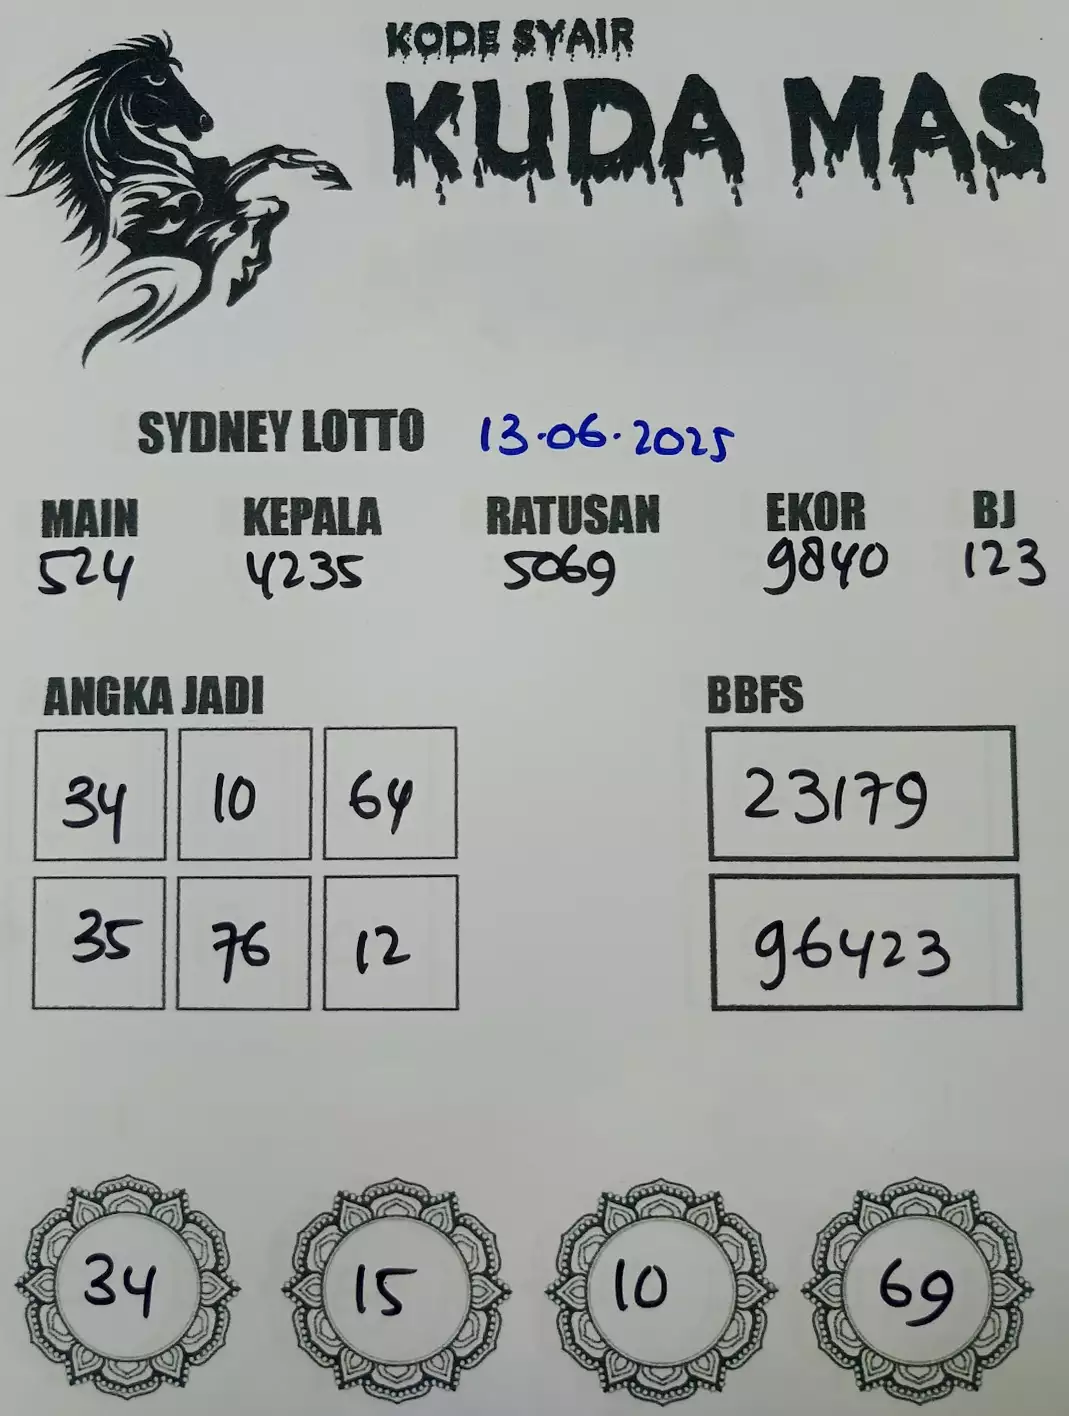 KODE SYAIR
KUDA MAS
SYDNEY LOTTO 13.06.2025
MAIN KEPALA RATUSAN EKOR BJ
524 4235 5069 9840 123
ANGKA JADI BBFS
34 10 64 23179
35 76 12 96423
34 15 10 69